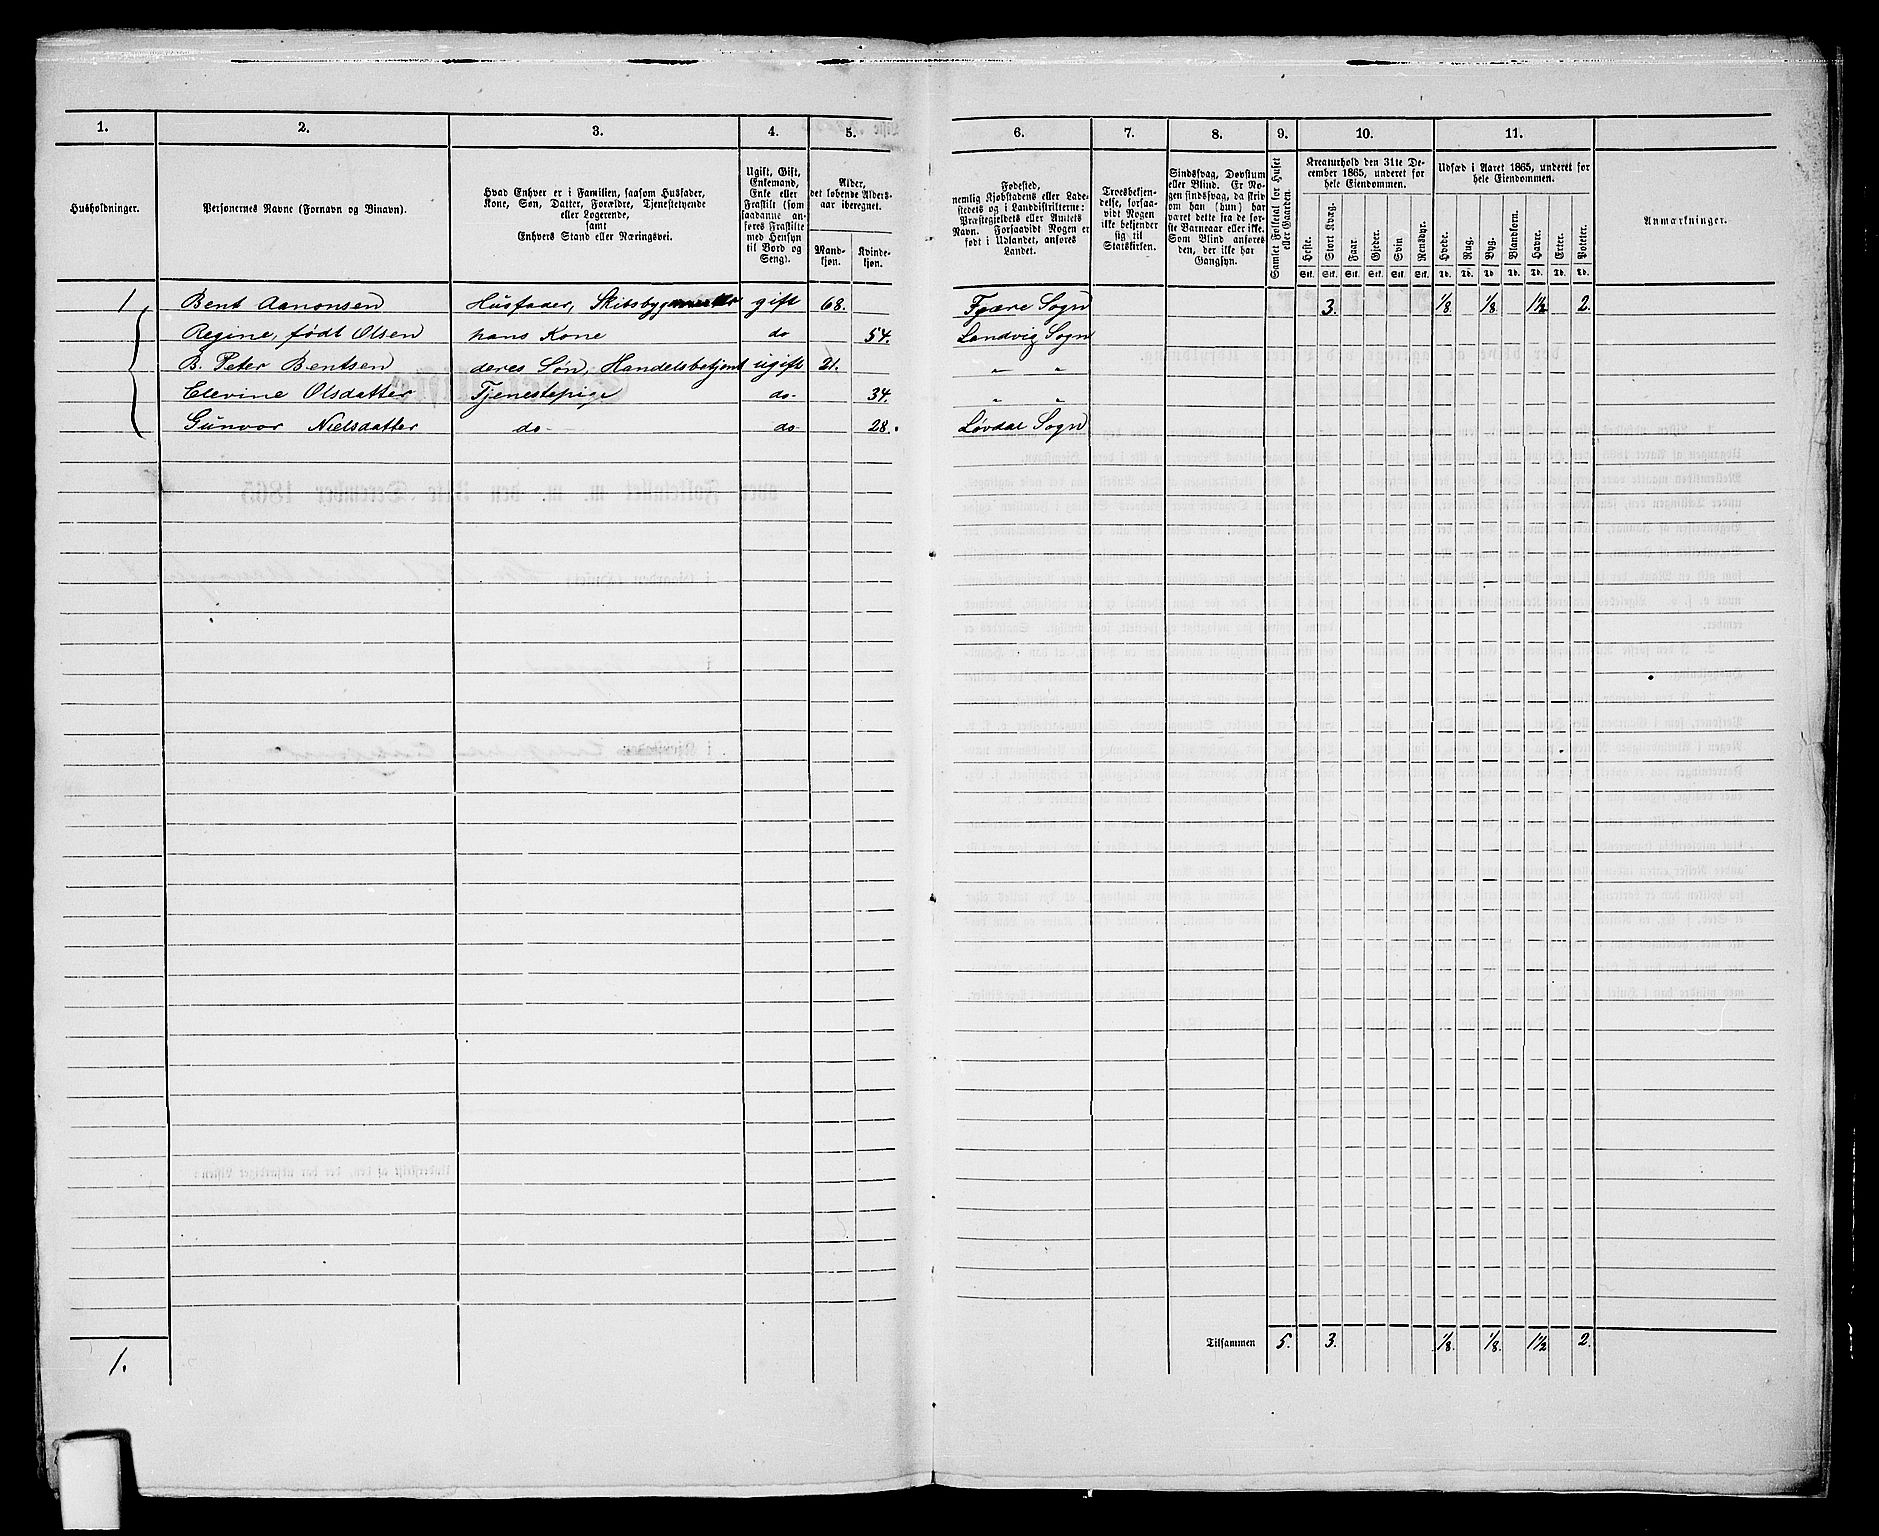 1. 2. 3. 4. 5. 6. 7. 8. 9. 10. 11.
Husholdninger.
Personernes Navne (Fornavn og Binavn).
Hvad Enhver er i Familien, saasom Husfader,
Kone, Søn, Datter, Forældre, Tjenestetyende
eller Logerende,
samt
Enhvers Stand eller Næringsvei.
Ugift, Gift,
Enkemand,
Enke eller
Fraskilt (som
saadanne an-
føres Fraskilte
med Hensyn
til Bord og
Seng).
Alder,
det løbende Alders-
aar iberegnet.
Mand-
kjøn.
Kvinde-
kjøn.
Fødested,
nemlig Kjøbstadens eller Lade-
stedets og i Landdistrikterne:
Præstegjeldets eller Amtets
Navn. Forsaavidt Nogen er
født i Udlandet, anføres
Landet.
Troesbekjen-
delse, forsaa-
vidt Nogen
ikke bekjender
sig til
Statskirken.
Sindssvag, Døvstum
eller Blind. Er No-
gen sindssvag, da skriv
om han (hun) har
været dette fra de før-
ste Barneaar eller ikke.
Som Blind anføres
den, der ikke har
Gangsyn.
Samlet Folketal for Huset
eller Gaarden.
Kreaturhold den 31te De-
cember 1865, underet for
hele Eiendommen.
Heste. Stort Kvæg. Faar. Gjeder. Svin Rensdyr.
Stk. Stk. Stk. Stk. Stk. Stk.
Udsæd i Aaret 1865, underet for
hele Eiendommen.
Hvede. Rug. Byg. Blandkorn. Havre. Erter. Poteter.
Td. Td. Td. Td. Td. Td. Td.
Anmærkninger.
1 Bent Aanonsen Husfader, Skibsbygmester gift 68. Fjære Sogn 3. 1/8 1/8 1 1/2 2.
Regine, født Olsen hans Kone do 54. Landvig Sogn
B. Peter Bentsen deres Søn, Handelsbetjent ugift 21. " "
Elevine Olsdatter Tjenestepige do- 34. " "
Gunvor Nielsdatter do- do- 28. Løvdal Sogn
Tilsammen 5. 3. 1/8. 1/8. 1 1/2 2.
1.